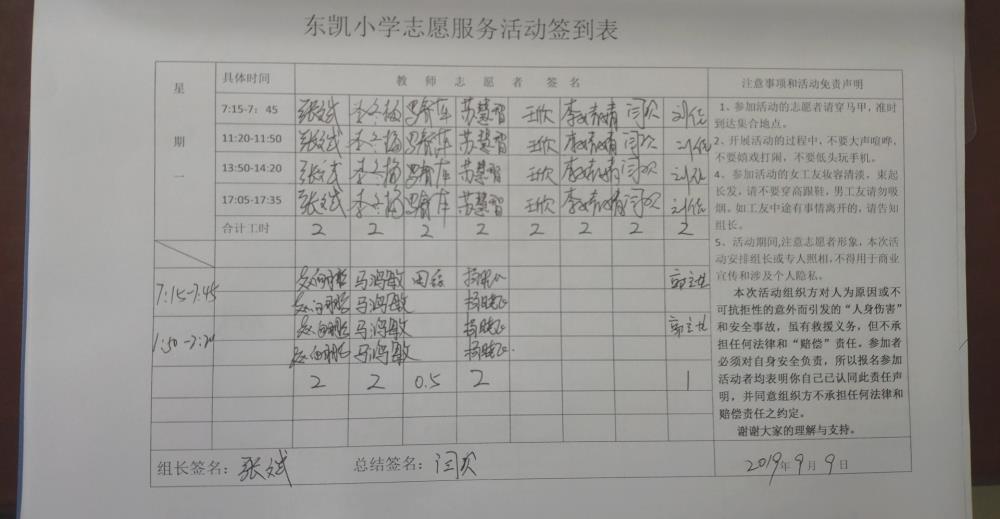 东凯小学志愿服务活动签到表
星期一
具体时间 教师志愿者签名 注意事项和活动免责声明
7:15-7:45 张斌 李冬梅 苏慧智 王欣 闫欢 刘佳
11:20-11:50 张斌 李冬梅 苏慧智 王欣 闫欢 刘佳
13:50-14:20 张斌 李冬梅 苏慧智 王欣 闫欢 刘佳
17:05-17:35 张斌 李冬梅 苏慧智 王欣 闫欢 刘佳
合计工时 2 2 2 2 2 2 2 2
7:15-7:45 马鸿敏
马鸿敏
1:50-2:20 马鸿敏
马鸿敏
2 2 0.5 2 1
1、参加活动的志愿者请穿马甲，准时
到达集合地点。
2、开展活动的过程中，不要大声喧哗，
不要嬉戏打闹，不要低头玩手机。
4、参加活动的女工友妆容清淡，束起
长发，请不要穿高跟鞋，男工友请勿吸
烟。如工友中途有事情离开的，请告知
组长。
5、活动期间,注意志愿者形象，本次活
动安排组长或专人照相，不得用于商业
宣传和涉及个人隐私。
本次活动组织方对人为原因或不
可抗拒性的意外而引发的“人身伤害”
和安全事故，虽有救援义务，但不承
担任何法律和“赔偿”责任。参加者
必须对自身安全负责，所以报名参加
活动者均表明你自己己认同此责任声
明，并同意组织方不承担任何法律和
赔偿责任之约定。
谢谢大家的理解与支持。
组长签名：张斌 总结签名：闫欢 2019年9月9日